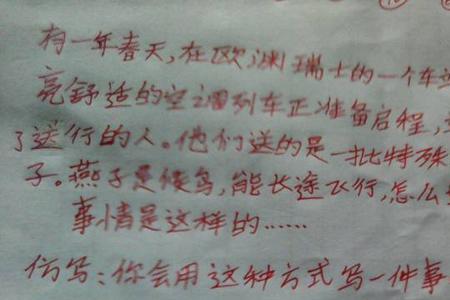 有一年春天,在欧洲瑞士的一个车
亮舒适的空调列车正准备启程,
了送行的人。他们送的是一批特殊
子。燕子是候鸟,能长途飞行,怎么
事情是这样的……
仿写:你会用这种方式写一件事